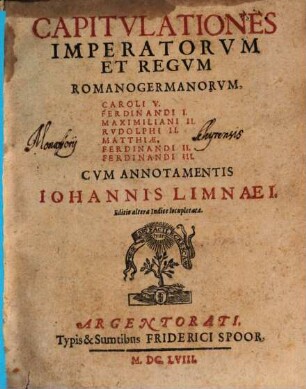 CAPITVLATIONES
IMPERATORVM
ET REGVM
ROMANOGERMANORVM,
CAROLI V.
FERDINANDI I.
MAXIMILIANI II.
RVDOLPHI II.
Monasterij MATTHIÆ,
FERDINANDI II.
FERDINANDI III.
CVM ANNOTAMENTIS
IOHANNIS LIMNAEI.
Editio altera Indice locupletata.
ARGENTORATI,
Typis & Sumtibus FRIDERICI SPOOR,
M. DC. LVIII.